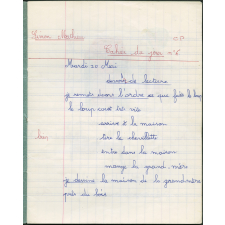 Mardi 20 Mai
de lecture
je remets dans l'ordre ce que fait le loup
le loup court très vite
arrive à la maison
tire la chevillette
entre dans la maison
mange la grand-mère
je dessine la maison de la grand-mère
près du bois